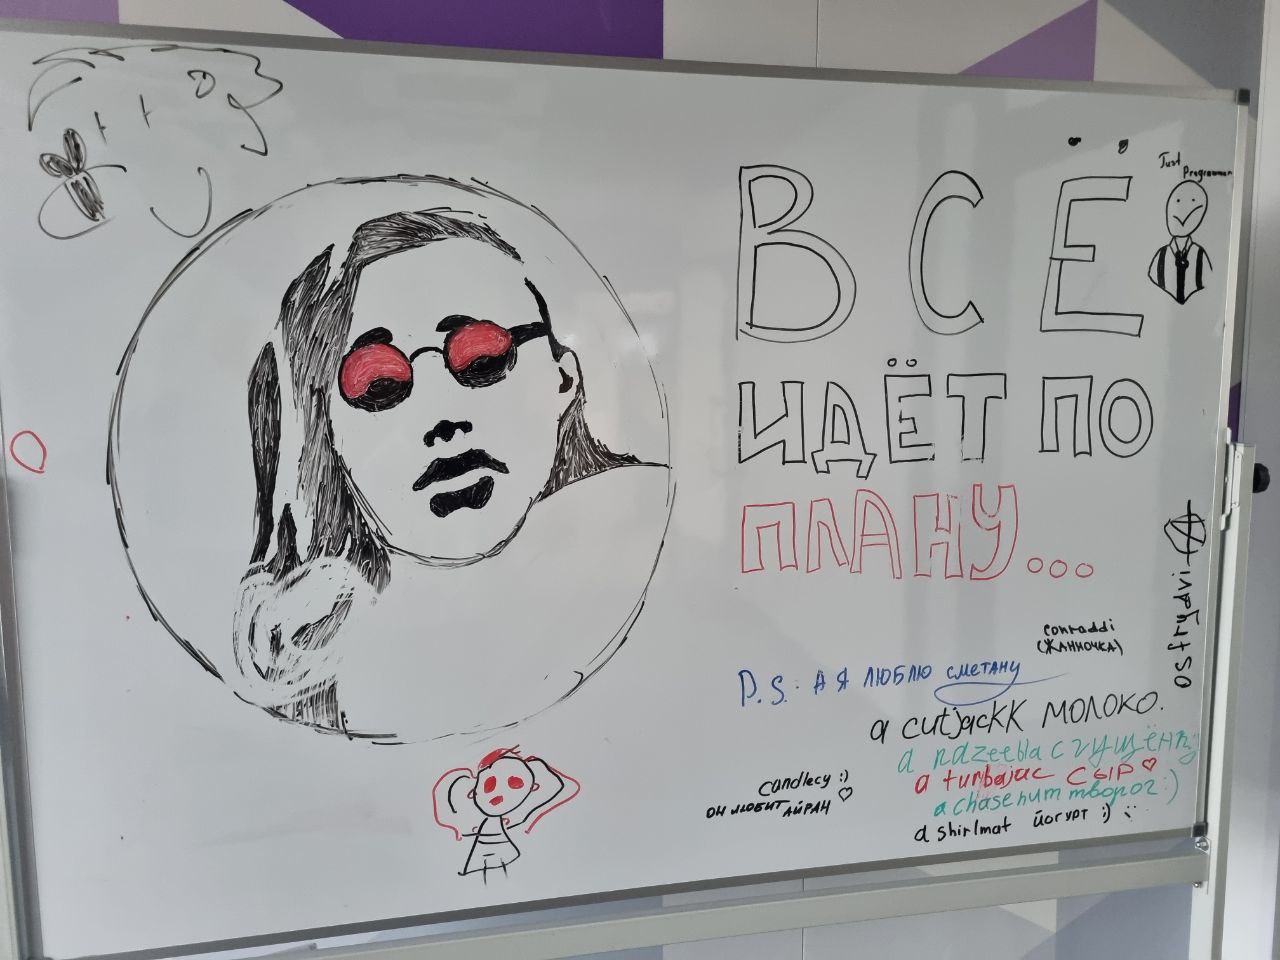 ВСЁ
Just
Programmer
ИДЁТ ПО
ПЛАНУ...
osfrydvi
conraddi
(ЖАННОЧКА)
P.S.: А Я ЛЮБЛЮ СМЕТАНУ
а cutjackk МОЛОКО.
а razeebla сгущёнку
а turbajac СЫР ♡
а chasenum творог :)
candlecy :)
ОН ЛЮБИТ АЙРАН ♡
а shirlmat йогурт :)